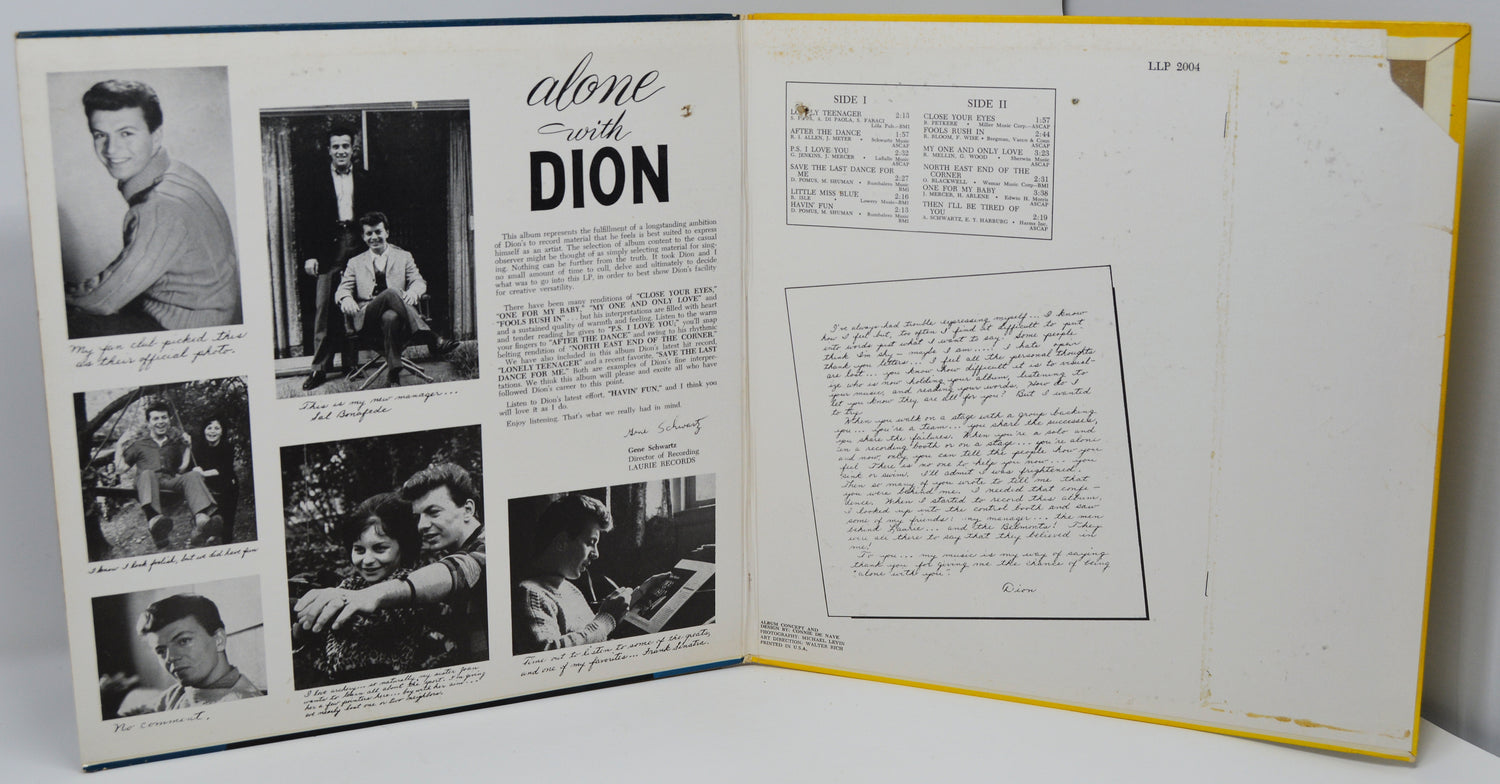 alone
with
DION
This album represents the fulfillment of a longstanding ambition
of Dion's to record material that he feels is best suited to express
himself as an artist. The selection of album content to the casual
observer might be thought of as simply selecting material for sing-
ing. Nothing can be further from the truth. It took Dion and I
no small amount of time to cull, delve and ultimately to decide
what was to go into this LP, in order to best show Dion's facility
for creative versatility.
There have been many renditions of "CLOSE YOUR EYES,"
"ONE FOR MY BABY," "MY ONE AND ONLY LOVE" and
"FOOLS RUSH IN" . . . but his interpretations are filled with heart
and a sustained quality of warmth and feeling. Listen to the warm
and tender reading he gives to "P.S. I LOVE YOU," you'll snap
your fingers to "AFTER THE DANCE" and swing to his rhythmic
belting rendition of "NORTH EAST END OF THE CORNER."
We have also included in this album Dion's latest hit record,
"LONELY TEENAGER" and a recent favorite, "SAVE THE LAST
DANCE FOR ME." Both are examples of Dion's fine interpre-
tations. We think this album will please and excite all who have
followed Dion's career to this point.
Listen to Dion's latest effort, "HAVIN' FUN," and I think you
will love it as I do.
Enjoy listening. That's what we really had in mind.
Gene Schwartz
Gene Schwartz
Director of Recording
LAURIE RECORDS
My fan club picked this
as their official photo.
This is my new manager...
Sal Bonafede
I know I look foolish, but we did have fun
No comment.
I love archery... so naturally, my sister Joan
wants to learn all about the sport. I'm giving
her a few pointers here... boy with her aim...
we nearly lost one or two neighbors.
Time out to listen to some of the greats,
and one of my favorites... Frank Sinatra.
LLP 2004
SIDE I
LONELY TEENAGER 2:13
S. A. DI PAOLA, S. FARACI
Lola Pub.-BMI
AFTER THE DANCE 1:57
R. I. ALLEN, J. MEYER • Schwartz Music
ASCAP
P.S. I LOVE YOU 2:32
G. JENKINS, J. MERCER • LaSalle Music
ASCAP
SAVE THE LAST DANCE FOR
ME 2:27
D. POMUS, M. SHUMAN • Rumbalero Music
BMI
LITTLE MISS BLUE 2:16
B. ISLE • Lowery Music-BMI
HAVIN' FUN 2:13
D. POMUS, M. SHUMAN • Rumbalero Music
BMI
SIDE II
CLOSE YOUR EYES 1:57
B. PETKERE • Miller Music Corp.-ASCAP
FOOLS RUSH IN 2:44
R. BLOOM, F. WISE • Bregman, Vocco & Conn
ASCAP
MY ONE AND ONLY LOVE 3:23
R. MELLIN, G. WOOD • Sherwin Music
ASCAP
NORTH EAST END OF THE
CORNER 2:31
O. BLACKWELL • Wemar Music Corp-BMI
ONE FOR MY BABY 3:38
J. MERCER, H. ARLENE • Edwin H. Morris
ASCAP
THEN I'LL BE TIRED OF
YOU 2:19
A. SCHWARTZ, E. Y. HARBURG • Harms Inc.
ASCAP
I've always had trouble expressing myself... I know
how I feel but, too often I find it difficult to put
into words just what I want to say. Some people
think I'm shy - maybe I am.... I hate open
thank you letters... I feel all the personal thoughts
are lost... you know how difficult it is to visual-
ize who is now holding your album, listening to
your music, and reading your words. How do I
let you know they are all for you? But I wanted
to try.
When you walk on a stage with a group backing
you... you're a team... you share the successes,
you share the failures. When you're a solo and
in a recording booth or on a stage... you're alone
and now, only you can tell the people how you
feel. There is no one to help you now... you
sink or swim. I'll admit I was frightened.
Then so many of you wrote to tell me that
you were behind me. I needed that confi-
dence. When I started to record this album,
I looked up into the control booth and saw
some of my friends: my manager... the men
behind Laurie... and the Belmonts! They
were all there to say that they believed in
me!
To you... my music is my way of saying
thank you for giving me the chance of being
"alone with you".
Dion
ALBUM CONCEPT AND
DESIGN BY: CONNIE DE NAVE
PHOTOGRAPHY: MICHAEL LEVIN
ART DIRECTION: WALTER RICH
PRINTED IN U.S.A.